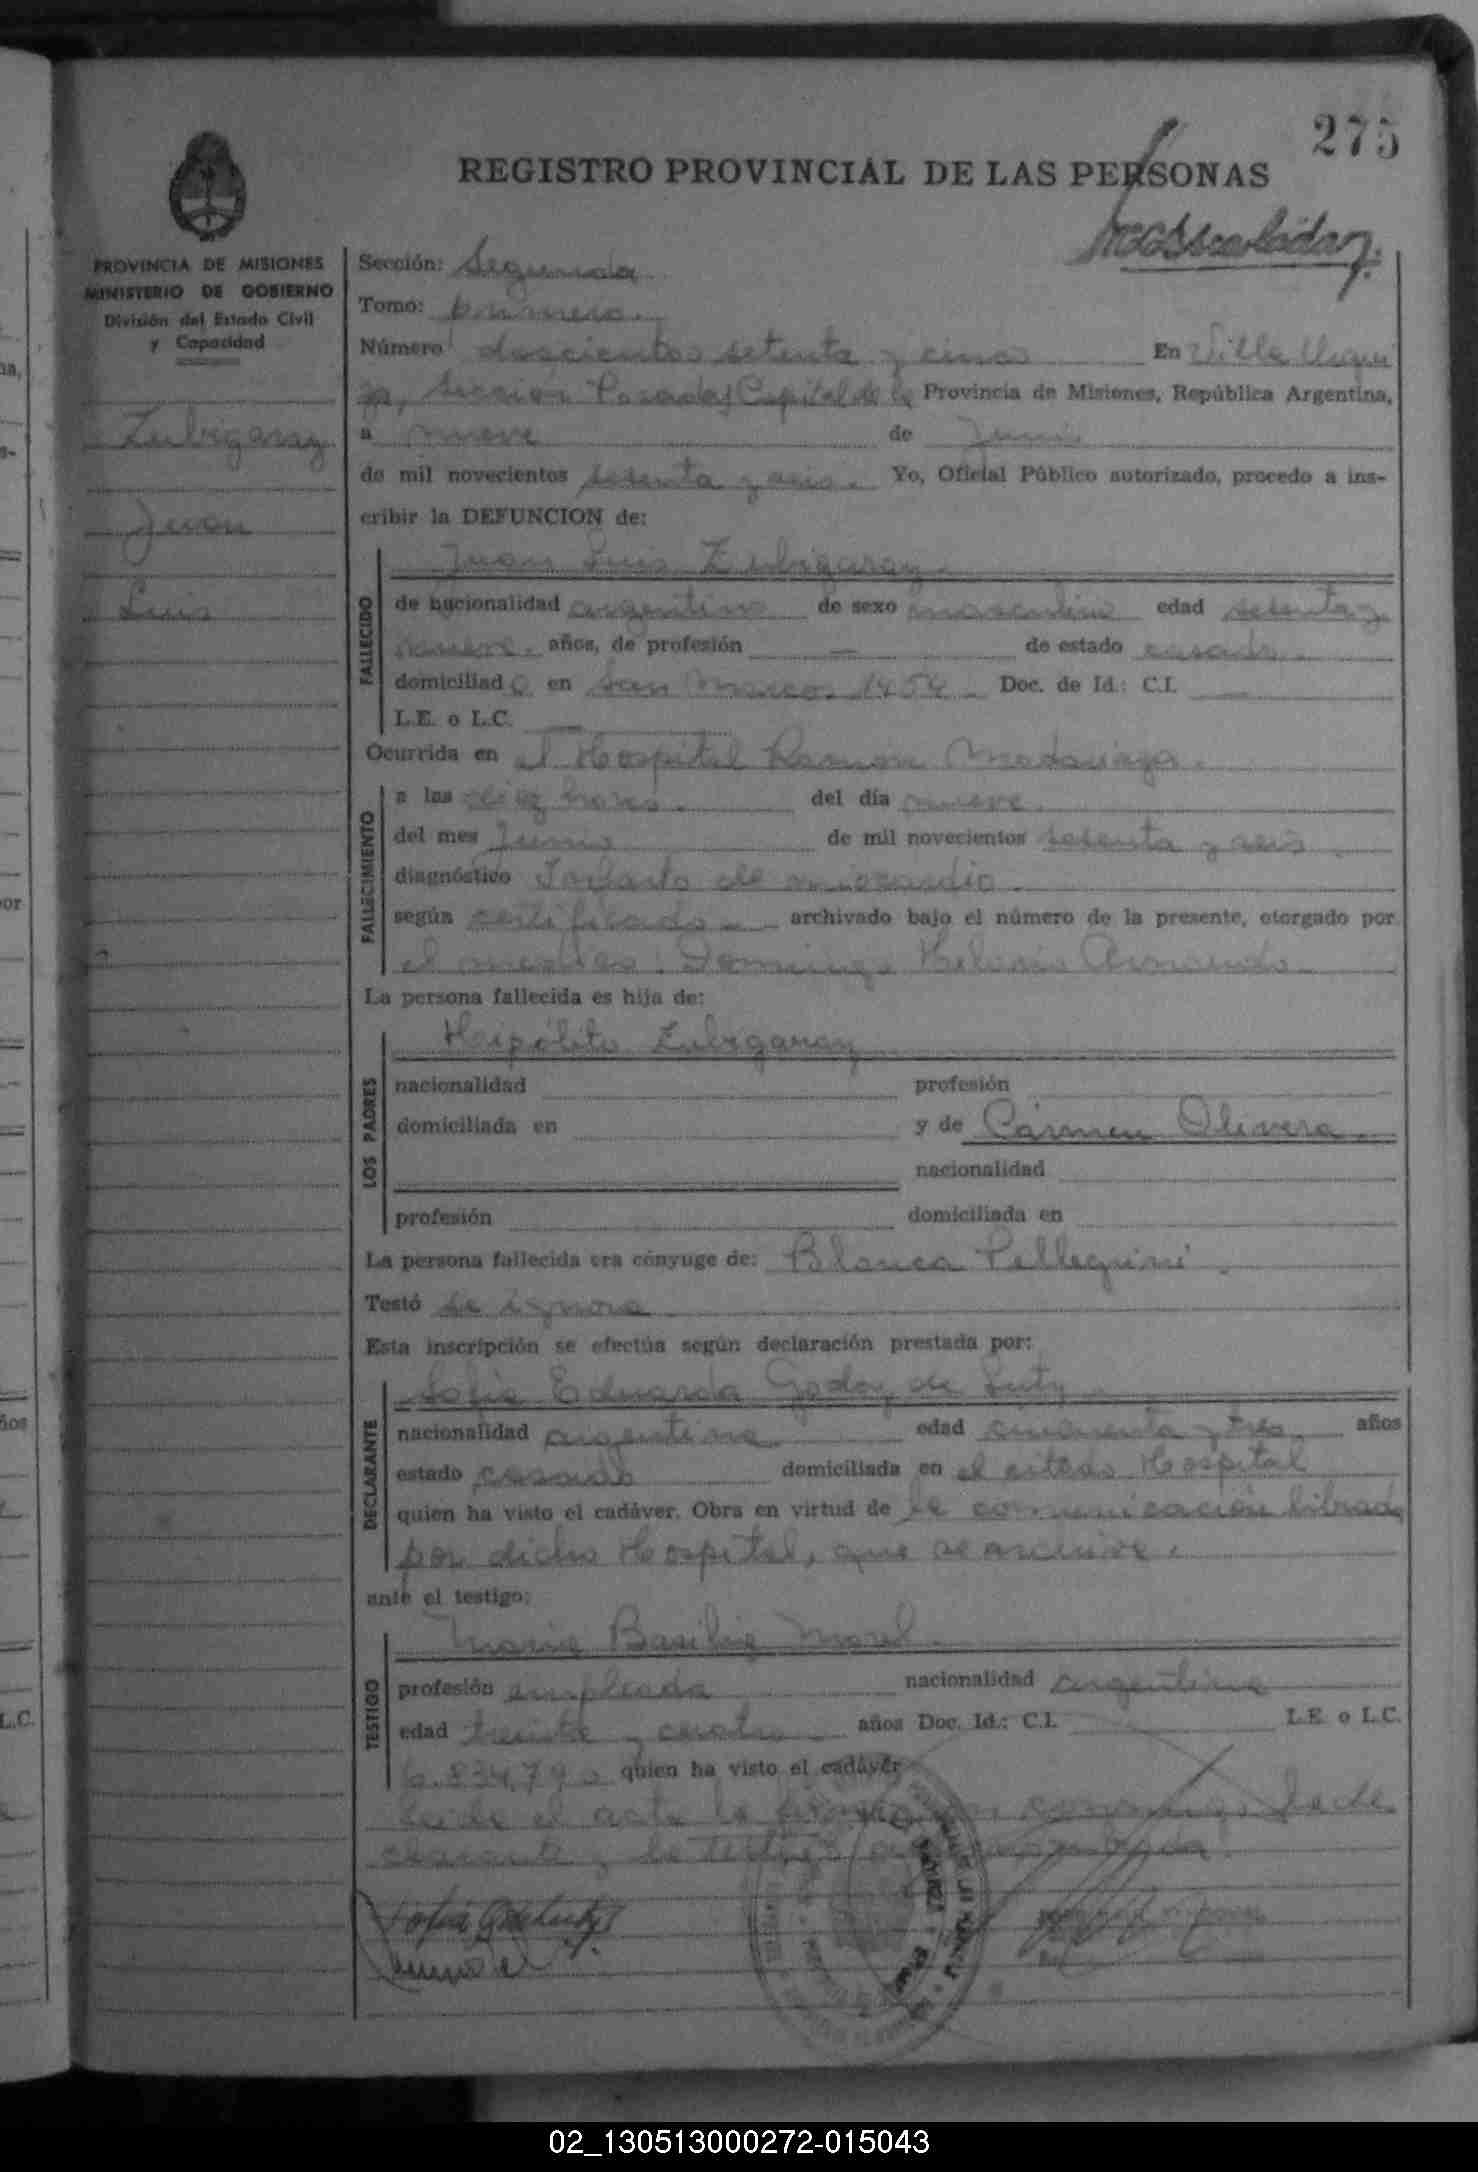 275
REGISTRO PROVINCIAL DE LAS PERSONAS
PROVINCIA DE MISIONES
MINISTERIO DE GOBIERNO
División del Estado Civil
y Capacidad
Zubigaray
Juan
Luis
Sección: Segunda
Tomo: primero.
Número doscientos setenta y cinco En Villa Urqui
za, Sección Posadas Capital de la Provincia de Misiones, República Argentina,
a nueve de Junio
de mil novecientos setenta y seis. Yo, Oficial Público autorizado, procedo a ins-
cribir la DEFUNCION de:
Juan Luis Zubigaray.
FALLECIDO
de nacionalidad argentino de sexo masculino edad setenta y
nueve. años, de profesión — de estado casado.
domiciliado en San Marcos 1454 Doc. de Id.: C.I. —
L.E. o L.C. —
Ocurrida en el Hospital Ramón Madariaga.
FALLECIMIENTO
a las diez horas. del día nueve.
del mes Junio de mil novecientos setenta y seis.
diagnóstico Infarto de miocardio.
según certificado archivado bajo el número de la presente, otorgado por
el médico: Domingo Armando
La persona fallecida es hija de:
LOS PADRES
Heipólito Zubigaray
nacionalidad profesión
domiciliada en y de Cármen Olivera.
nacionalidad
profesión domiciliada en
La persona fallecida era cónyuge de: Blanca Pellegrini.
Testó se ignora
Esta inscripción se efectúa según declaración prestada por:
DECLARANTE
Sofia Eduarda Godoy de
nacionalidad argentina edad cincuenta y tres años
estado casada domiciliada en el citado Hospital
quien ha visto el cadáver. Obra en virtud de la comunicación librada
por dicho Hospital, que se archiva.
ante el testigo:
TESTIGO
Maria Basilia Morel
profesión empleada nacionalidad argentina
edad treinta y cuatro años Doc. Id.: C.I. L.E. o L.C.
6.834.79 quien ha visto el cadáver
Leida el acta la firman conmigo la de
clarante y la testigo
02_130513000272-015043